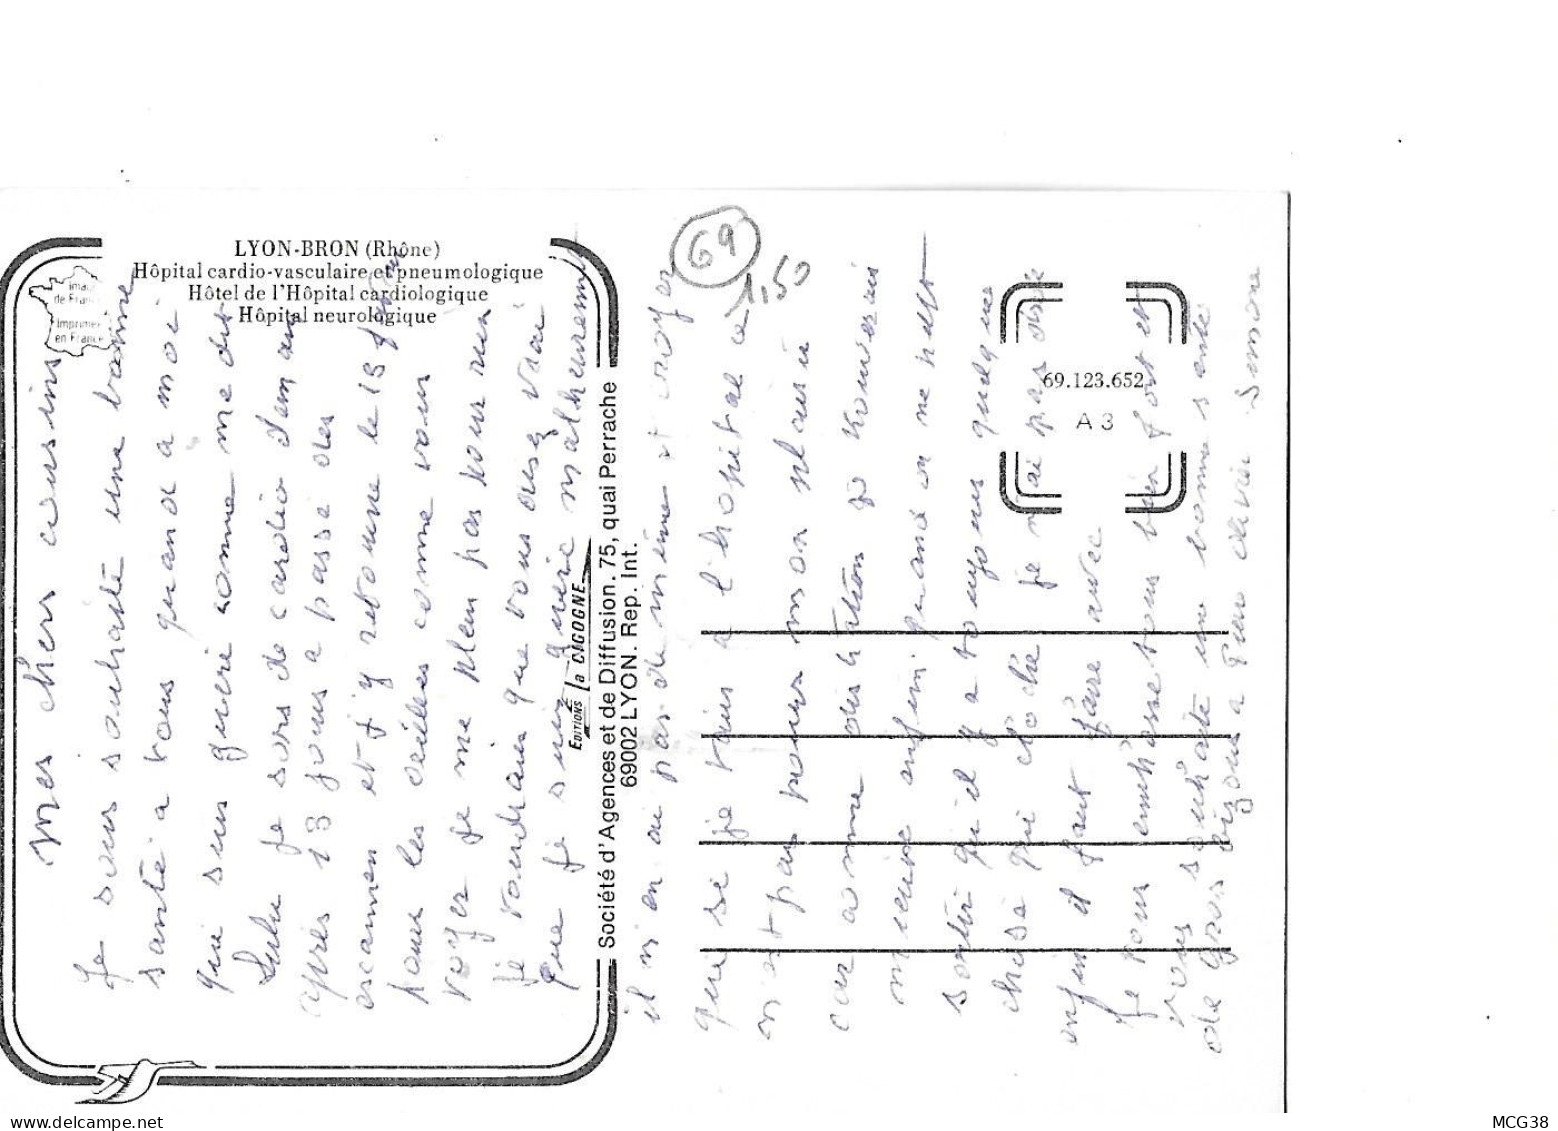 LYON-BRON (Rhône)
Hôpital cardio-vasculaire et pneumologique
Hôtel de l'Hôpital cardiologique
Hôpital neurologique
Image
de France
Imprimée
en France
69
1,50
69.123.652
A 3
EDITIONS la CIGOGNE
Société d'Agences et de Diffusion. 75, quai Perrache
69002 LYON. Rep. Int.
mes chers cousins
Je vous souhaite une bonne
santé a vous quand a moi
qui suis guerie comme me dit
Lulu je sors de cardio
apres 13 jours a passe des
escamen et j'y retourne le 18
pour les comme vous
voyez je me plein pas pour rien
je voudrais que vous ausez vrai
que je suis guérie malheureusement
il n'en ai pas de même et croyez
que si je vais a l'hopital ce
n'est pas pour mon plaisir
car comme
mieux enfin quand on ne peut
sortir qu'il y a toujours quelque
chose qui cloche je n'ai pas
enfin il faut faire avec
Je vous embrasse tous bien fort et
vous souhaite une bonne sante
de gros bisous a Pierre Simone
delcampe.net
MCG38